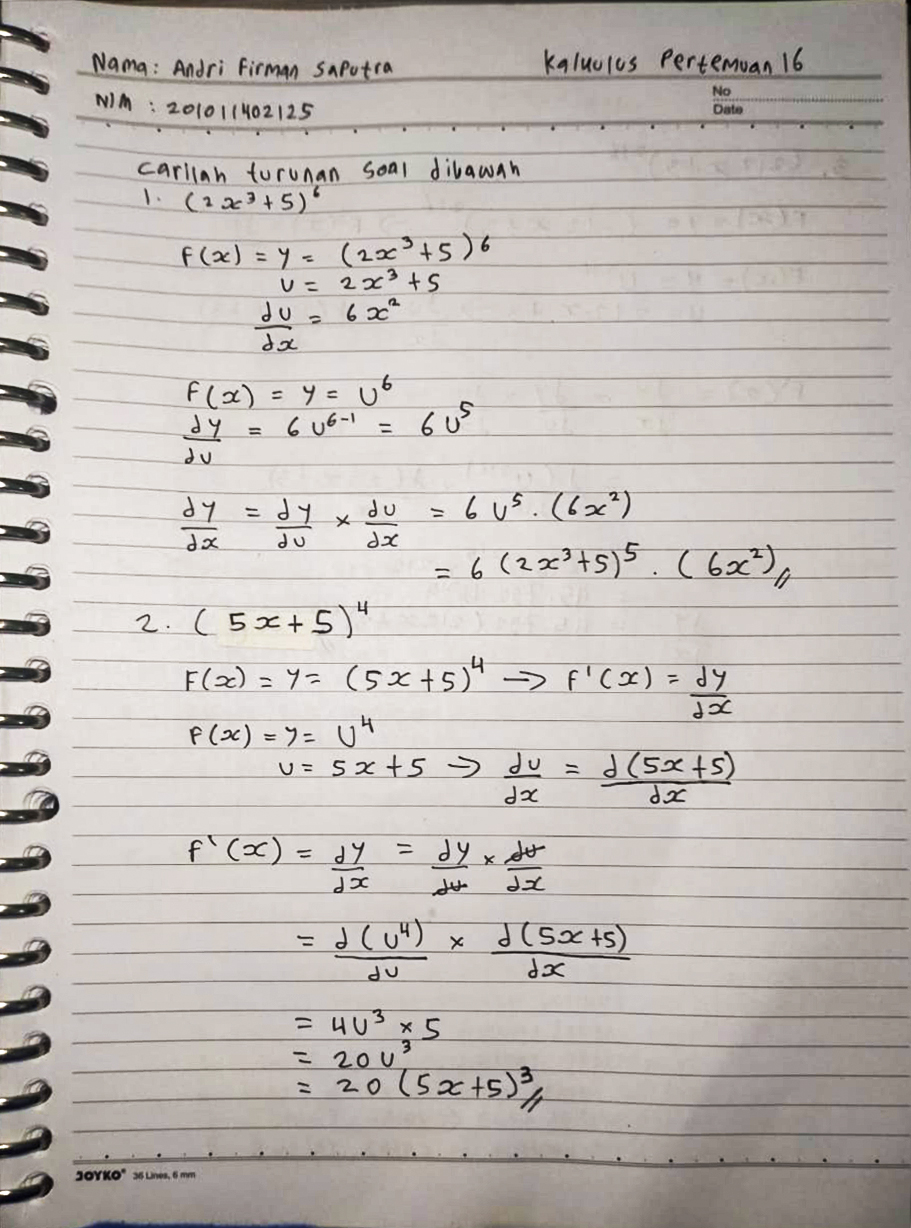 Nama: Andri Firman Saputra Kalkulus Pertemuan 16
NIM : 201011402125 No
Date
Carilah turunan soal dibawah
1. (2x³+5)⁶
F(x) = y = (2x³+5)⁶
u = 2x³+5
du/dx = 6x²
F(x) = y = u⁶
dy/du = 6u⁶⁻¹ = 6u⁵
dy/dx = dy/du × du/dx = 6u⁵ . (6x²)
= 6 (2x³+5)⁵ . (6x²)//
2. (5x+5)⁴
F(x) = y = (5x+5)⁴ → f'(x) = dy/dx
F(x) = y = u⁴
u = 5x+5 → du/dx = d(5x+5)/dx
f'(x) = dy/dx = dy/du × du/dx
= d(u⁴)/du × d(5x+5)/dx
= 4u³ × 5
= 20u³
= 20 (5x+5)³//
JOYKO® 36 Lines, 6 mm